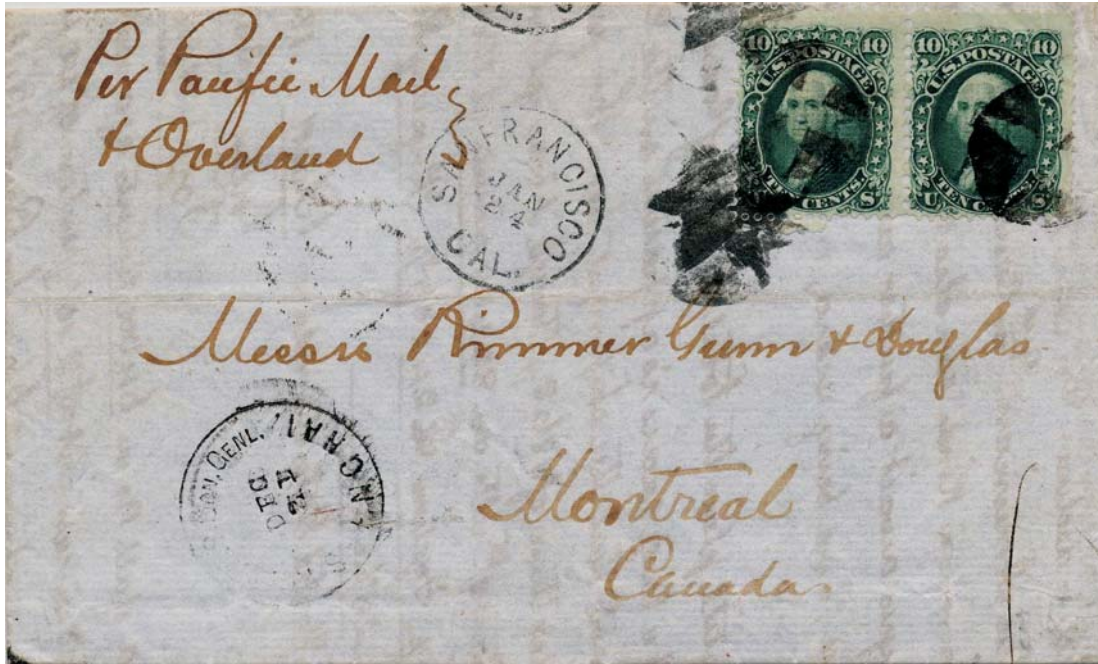 Per Pacific Mail
& Overland
SAN FRANCISCO
JAN
24
CAL.
10 10
U.S. POSTAGE
TEN CENTS.
S
10 10
U.S. POSTAGE
U TEN CENTS. S
Messrs Rimmer Gunn & Douglas
CON. GENL.
SHANGHAI
DEC
Montreal
Canada